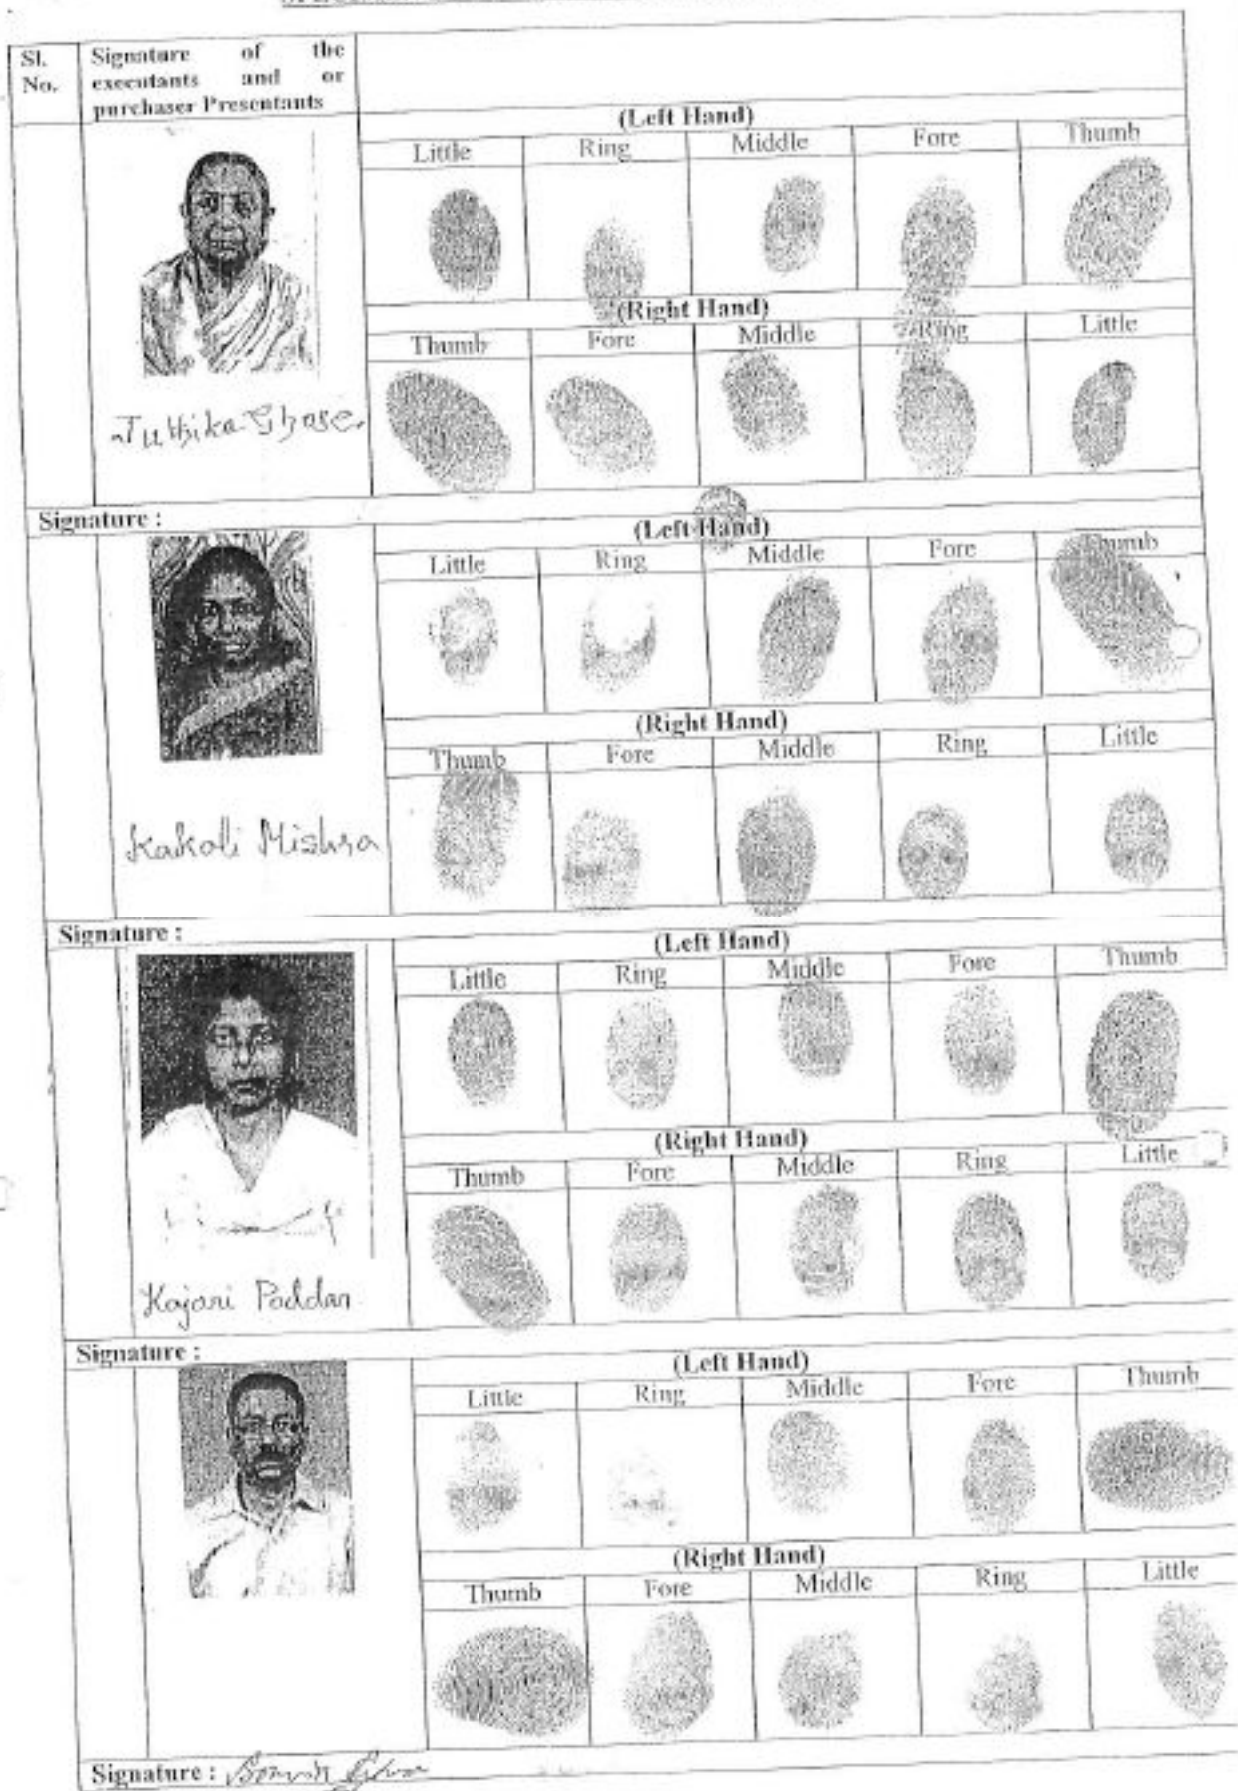 Sl. No.
Signature of the executants and or purchaser Presentants
(Left Hand)
Little Ring Middle Fore Thumb
(Right Hand)
Thumb Fore Middle Ring Little
Juthika Ghose.
Signature :
(Left Hand)
Little Ring Middle Fore Thumb
(Right Hand)
Thumb Fore Middle Ring Little
Kakoli Mishra
Signature :
(Left Hand)
Little Ring Middle Fore Thumb
(Right Hand)
Thumb Fore Middle Ring Little
Kajari Poddar
Signature :
(Left Hand)
Little Ring Middle Fore Thumb
(Right Hand)
Thumb Fore Middle Ring Little
Signature :